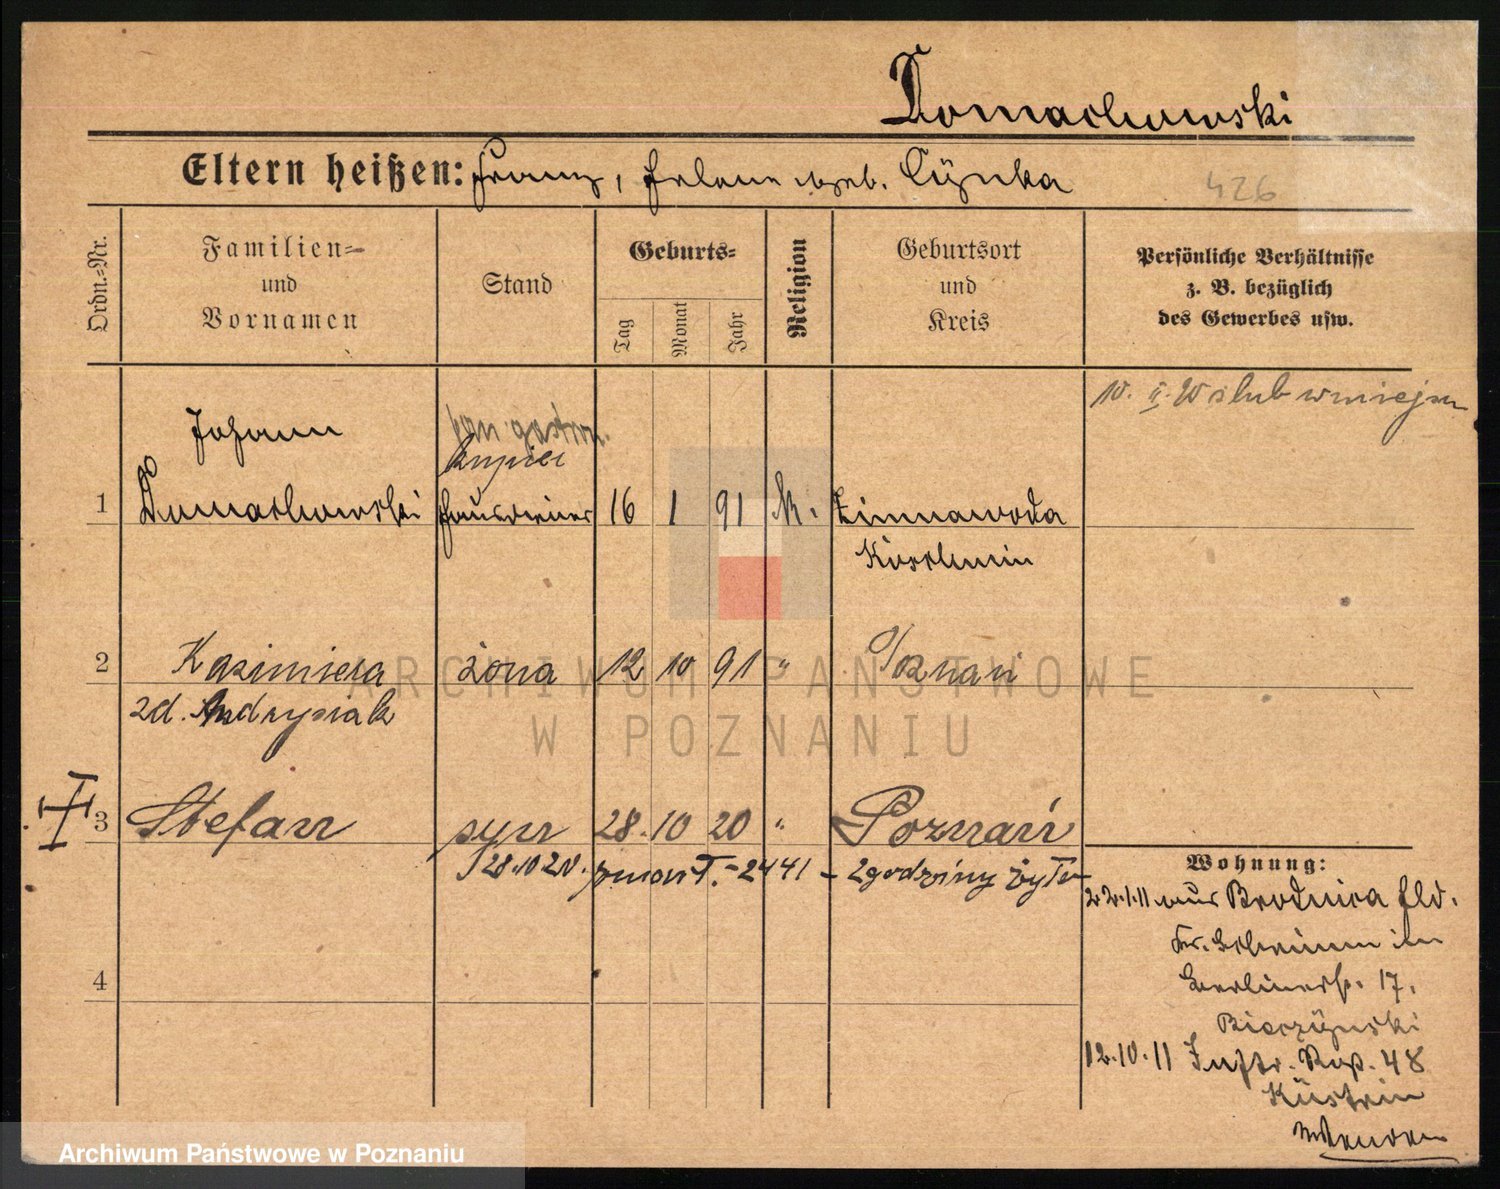 Domachowski
Eltern heißen: Franz, Helene geb. Cÿnka
426
Ordn.=Nr.
Familien=
und
Vornamen
Stand
Geburts=
Tag
Monat
Jahr
Religion
Geburtsort
und
Kreis
Persönliche Verhältnisse
z. B. bezüglich
des Gewerbes usw.
10. II. 20 ślub w miejscu
Johann
kupiec
1 Domachowski Hausdiener 16 1 91 k. Zimnawoda
Koschmin
2 Kazimiera żona 12 10 91 " Poznań
zd. Andrysiak
3 Stefan syn 28. 10 20 " Poznań
28.10.20. zmarł. - 2441 - 2 godziny żył
Wohnung:
22.1.11 aus Brodnica
Kr. Schrimm
Berlinerstr. 17.
Bierzÿnski
4
12.10.11 Inftr. Rgt. 48
Küstrin
ARCHIWUM PAŃSTWOWE
W POZNANIU
Archiwum Państwowe w Poznaniu